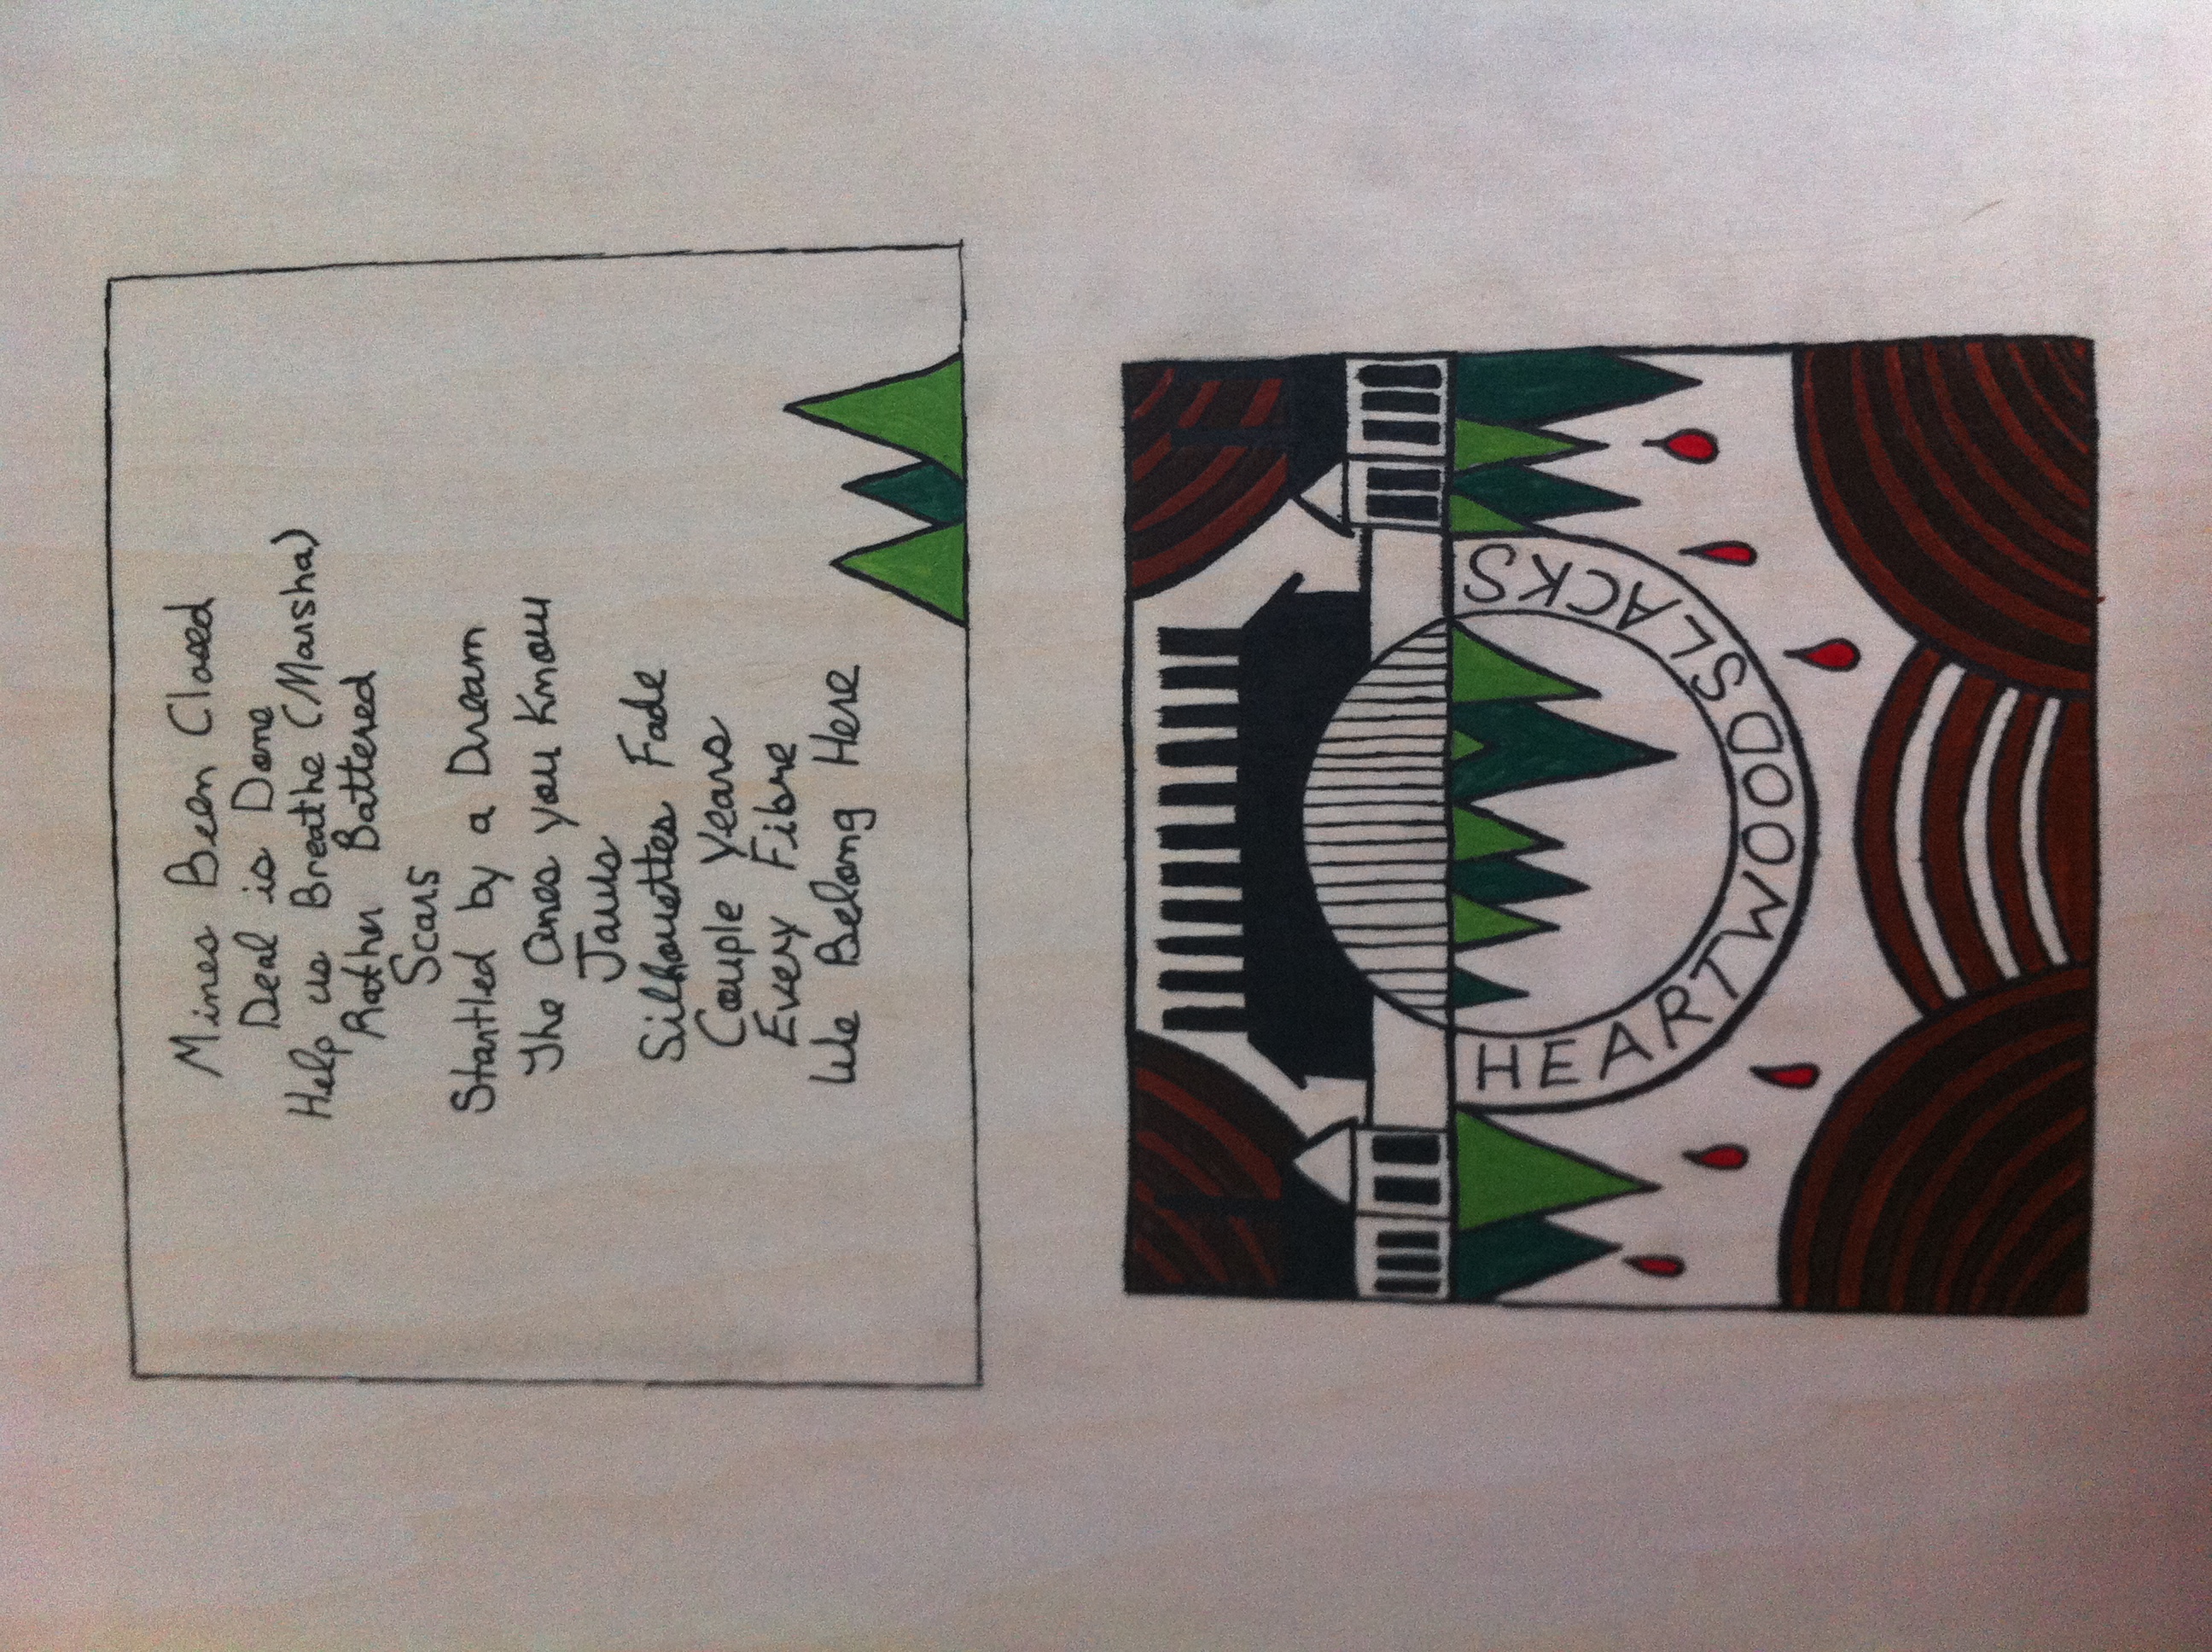 Mines Been Closed
Deal is Done
Help us Breathe (Marsha)
Rather Battered
Scars
Startled by a Dream
The Ones you Know
Jaws
Silhouettes Fade
Couple Years
Every Fibre
We Belong Here
HEARTWOODSLACKS